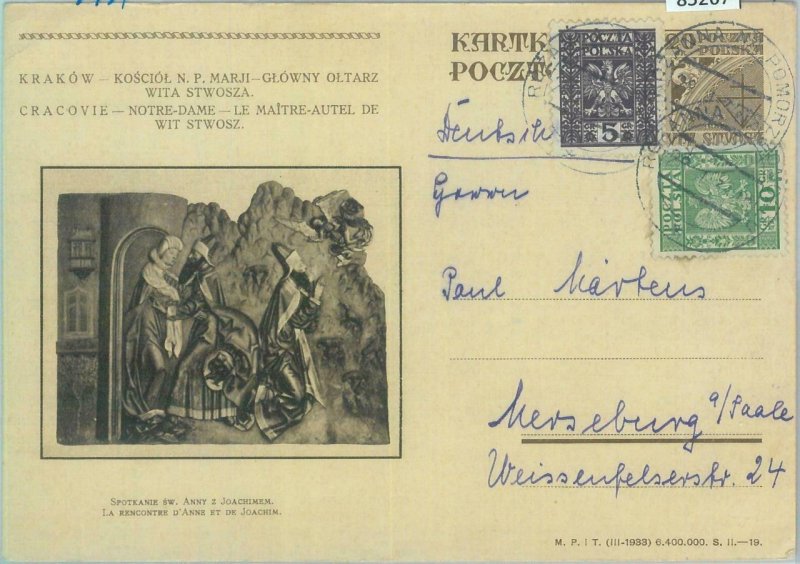 85207
KRAKÓW — KOŚCIÓŁ N. P. MARJI—GŁÓWNY OŁTARZ
WITA STWOSZA.
CRACOVIE — NOTRE-DAME — LE MAÎTRE-AUTEL DE
WIT STWOSZ.
SPOTKANIE ŚW. ANNY Z JOACHIMEM.
LA RENCONTRE D'ANNE ET DE JOACHIM.
KARTK
POCZT
POCZTA
POLSKA
5
POCZTA
POLSKA
WIT STWOSZ
10
POMORZ
Herrn
Paul Märtens
Merseburg a/Saale
Weissenfelserstr. 24
M. P. i T. (III-1933) 6.400.000. S. II.—19.